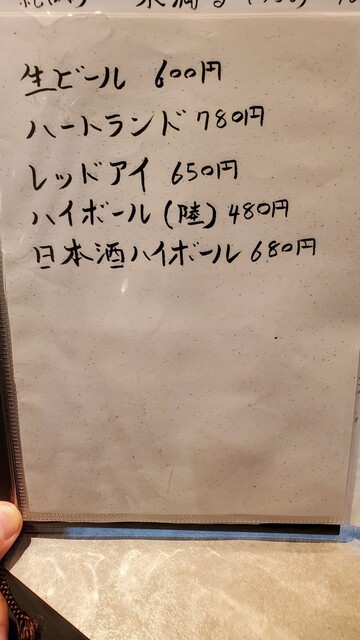 生ビール 600円
ハートランド 780円
レッドアイ 650円
ハイボール(陸) 480円
日本酒ハイボール 680円